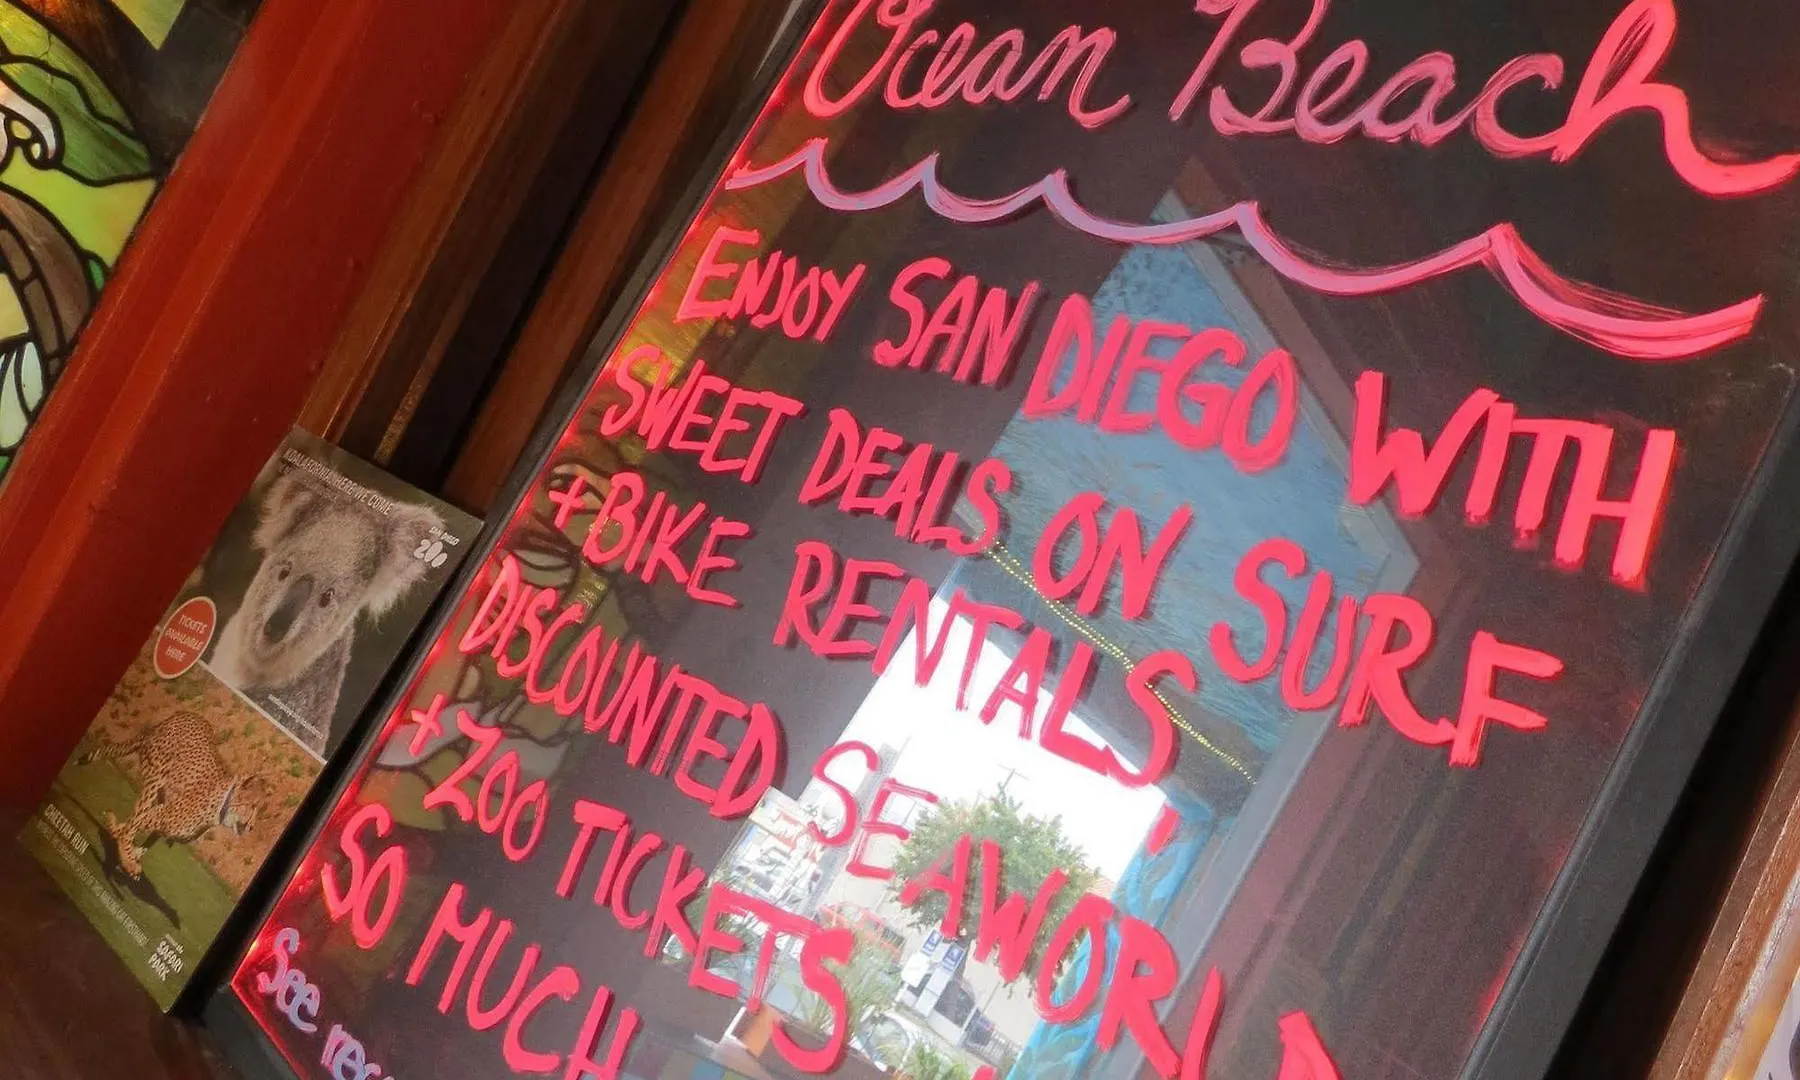 Ocean Beach
ENJOY SAN DIEGO WITH
SWEET DEALS ON SURF
+ BIKE RENTALS,
DISCOUNTED SEAWORLD
+ ZOO TICKETS
SO MUCH
See
KOALAFORNIA, HERE WE COME
SAN DIEGO
ZOO
TICKETS
AVAILABLE
HERE
CHEETAH RUN
SAFARI
PARK